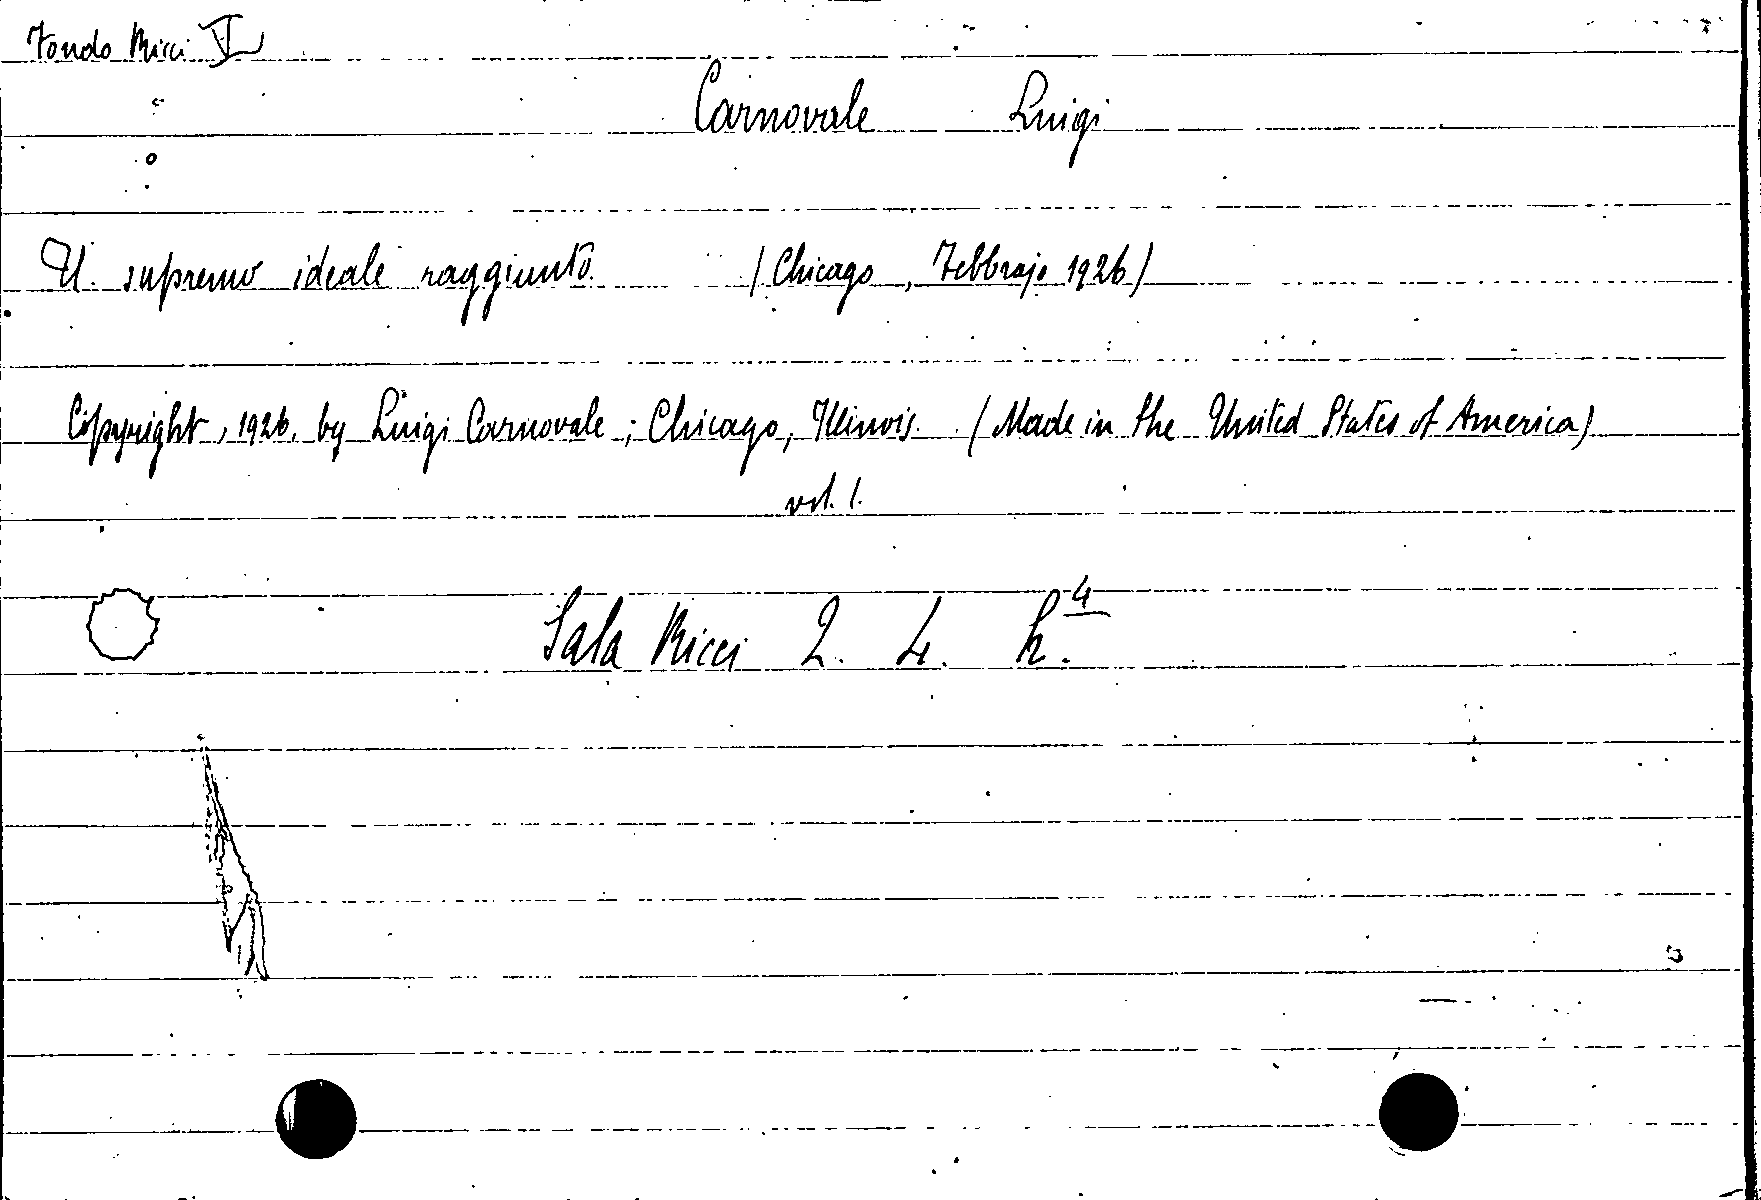 Fondo Ricci VI
Carnovale Luigi
Il supremo ideale raggiunto. (Chicago, Febbrajo 1926)
Copyright, 1926, by Luigi Carnovale; Chicago, Illinois. (Made in the United States of America)
vol. 1.
Sala Ricci 2. 4. h.4